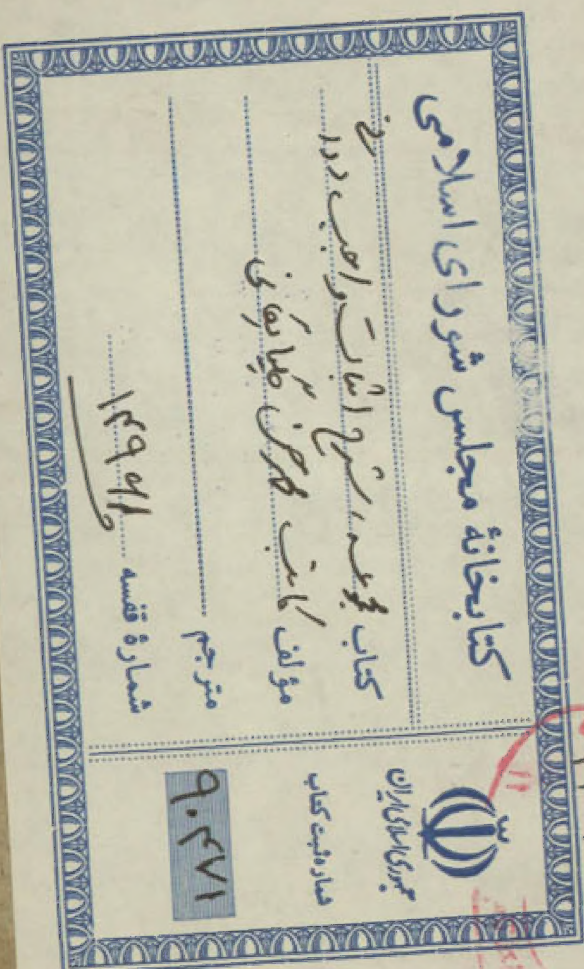 کتابخانهٔ مجلس شورای اسلامی
کتاب مجموعه، شرح اثبات واجب
مؤلف کاتب محمد حسن گلپایگانی
مترجم
شمارهٔ قفسه
جمهوری اسلامی ایران
شماره ثبت کتاب
۹۰۴۷۱